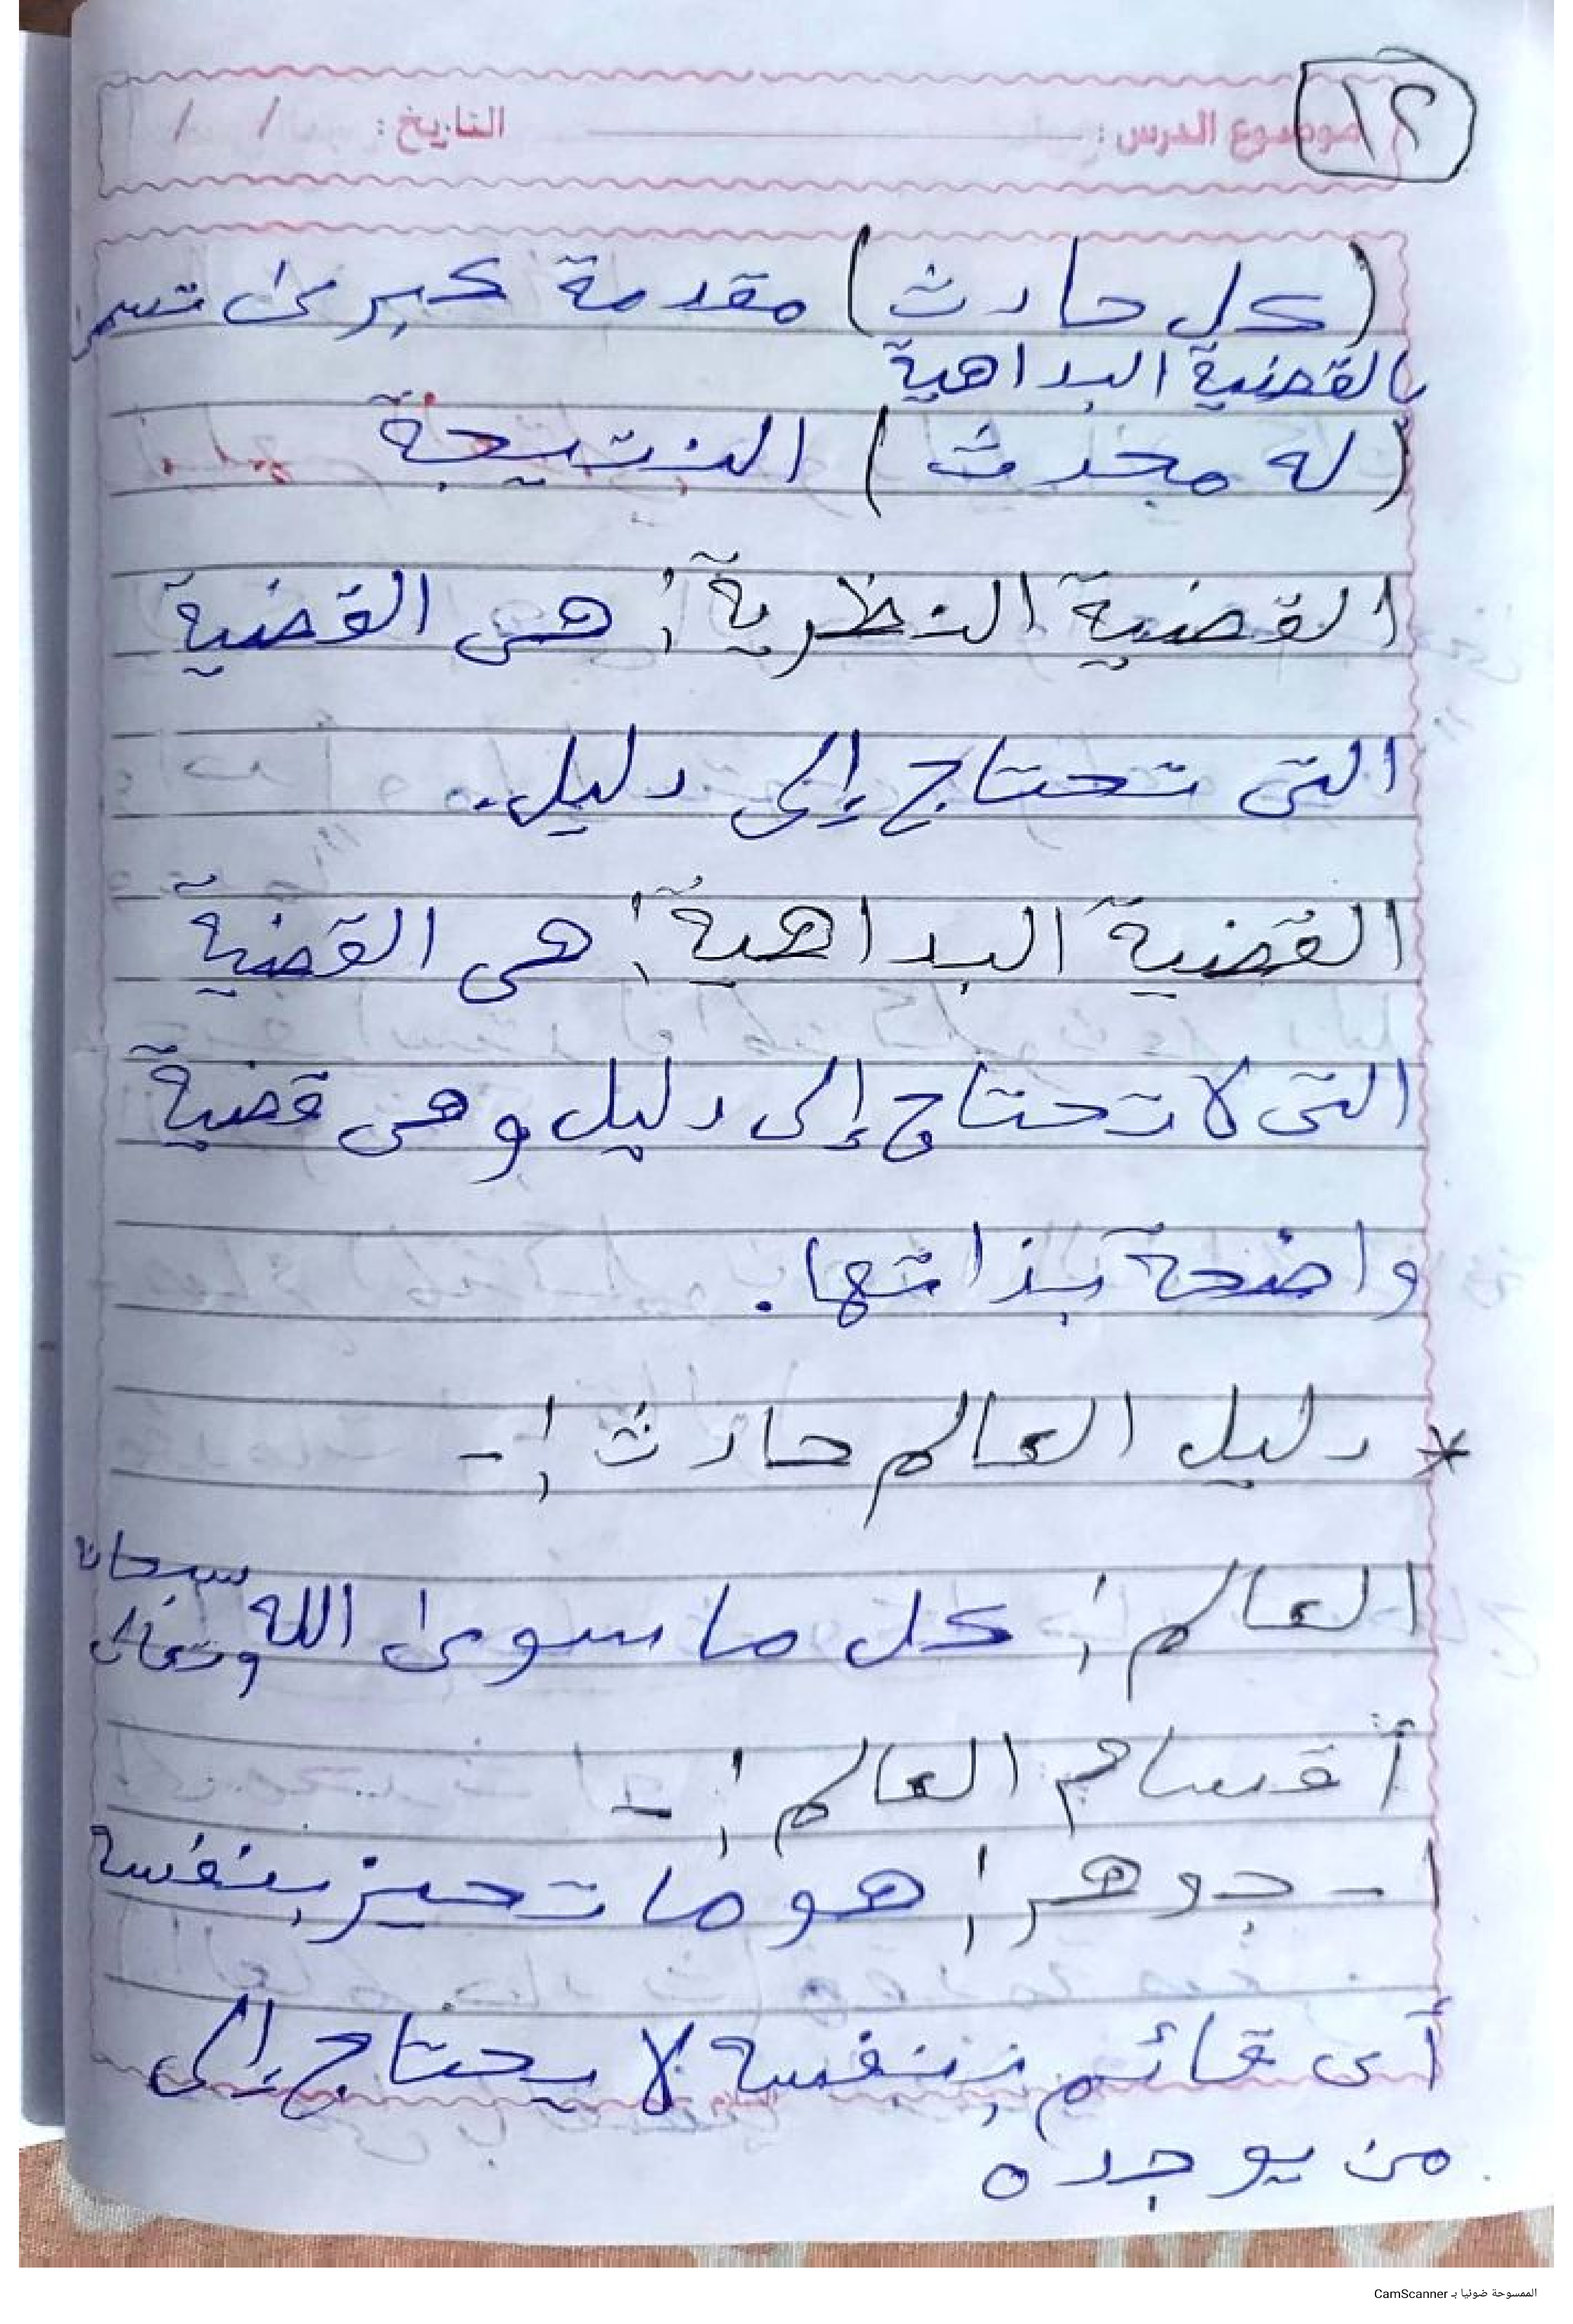 ١٢
موضوع الدرس : التاريخ : / /
(كل حادث) مقدمة كبرى تسمى
بالقضية البداهية
(له محدث) النتيجة
القضية النظرية: هى القضية
التى تحتاج إلى دليل.
القضية البداهية: هى القضية
التى لا تحتاج إلى دليل وهى قضية
واضحة بذاتها.
* دليل العالم حادث :-
العالم: كل ما سوى الله سبحانه وتعالى
أقسام العالم :-
١- جوهر: هو ما تحيز بنفسه
أى قائم بنفسه لا يحتاج إلى
من يوجده
الممسوحة ضوئيا بـ CamScanner